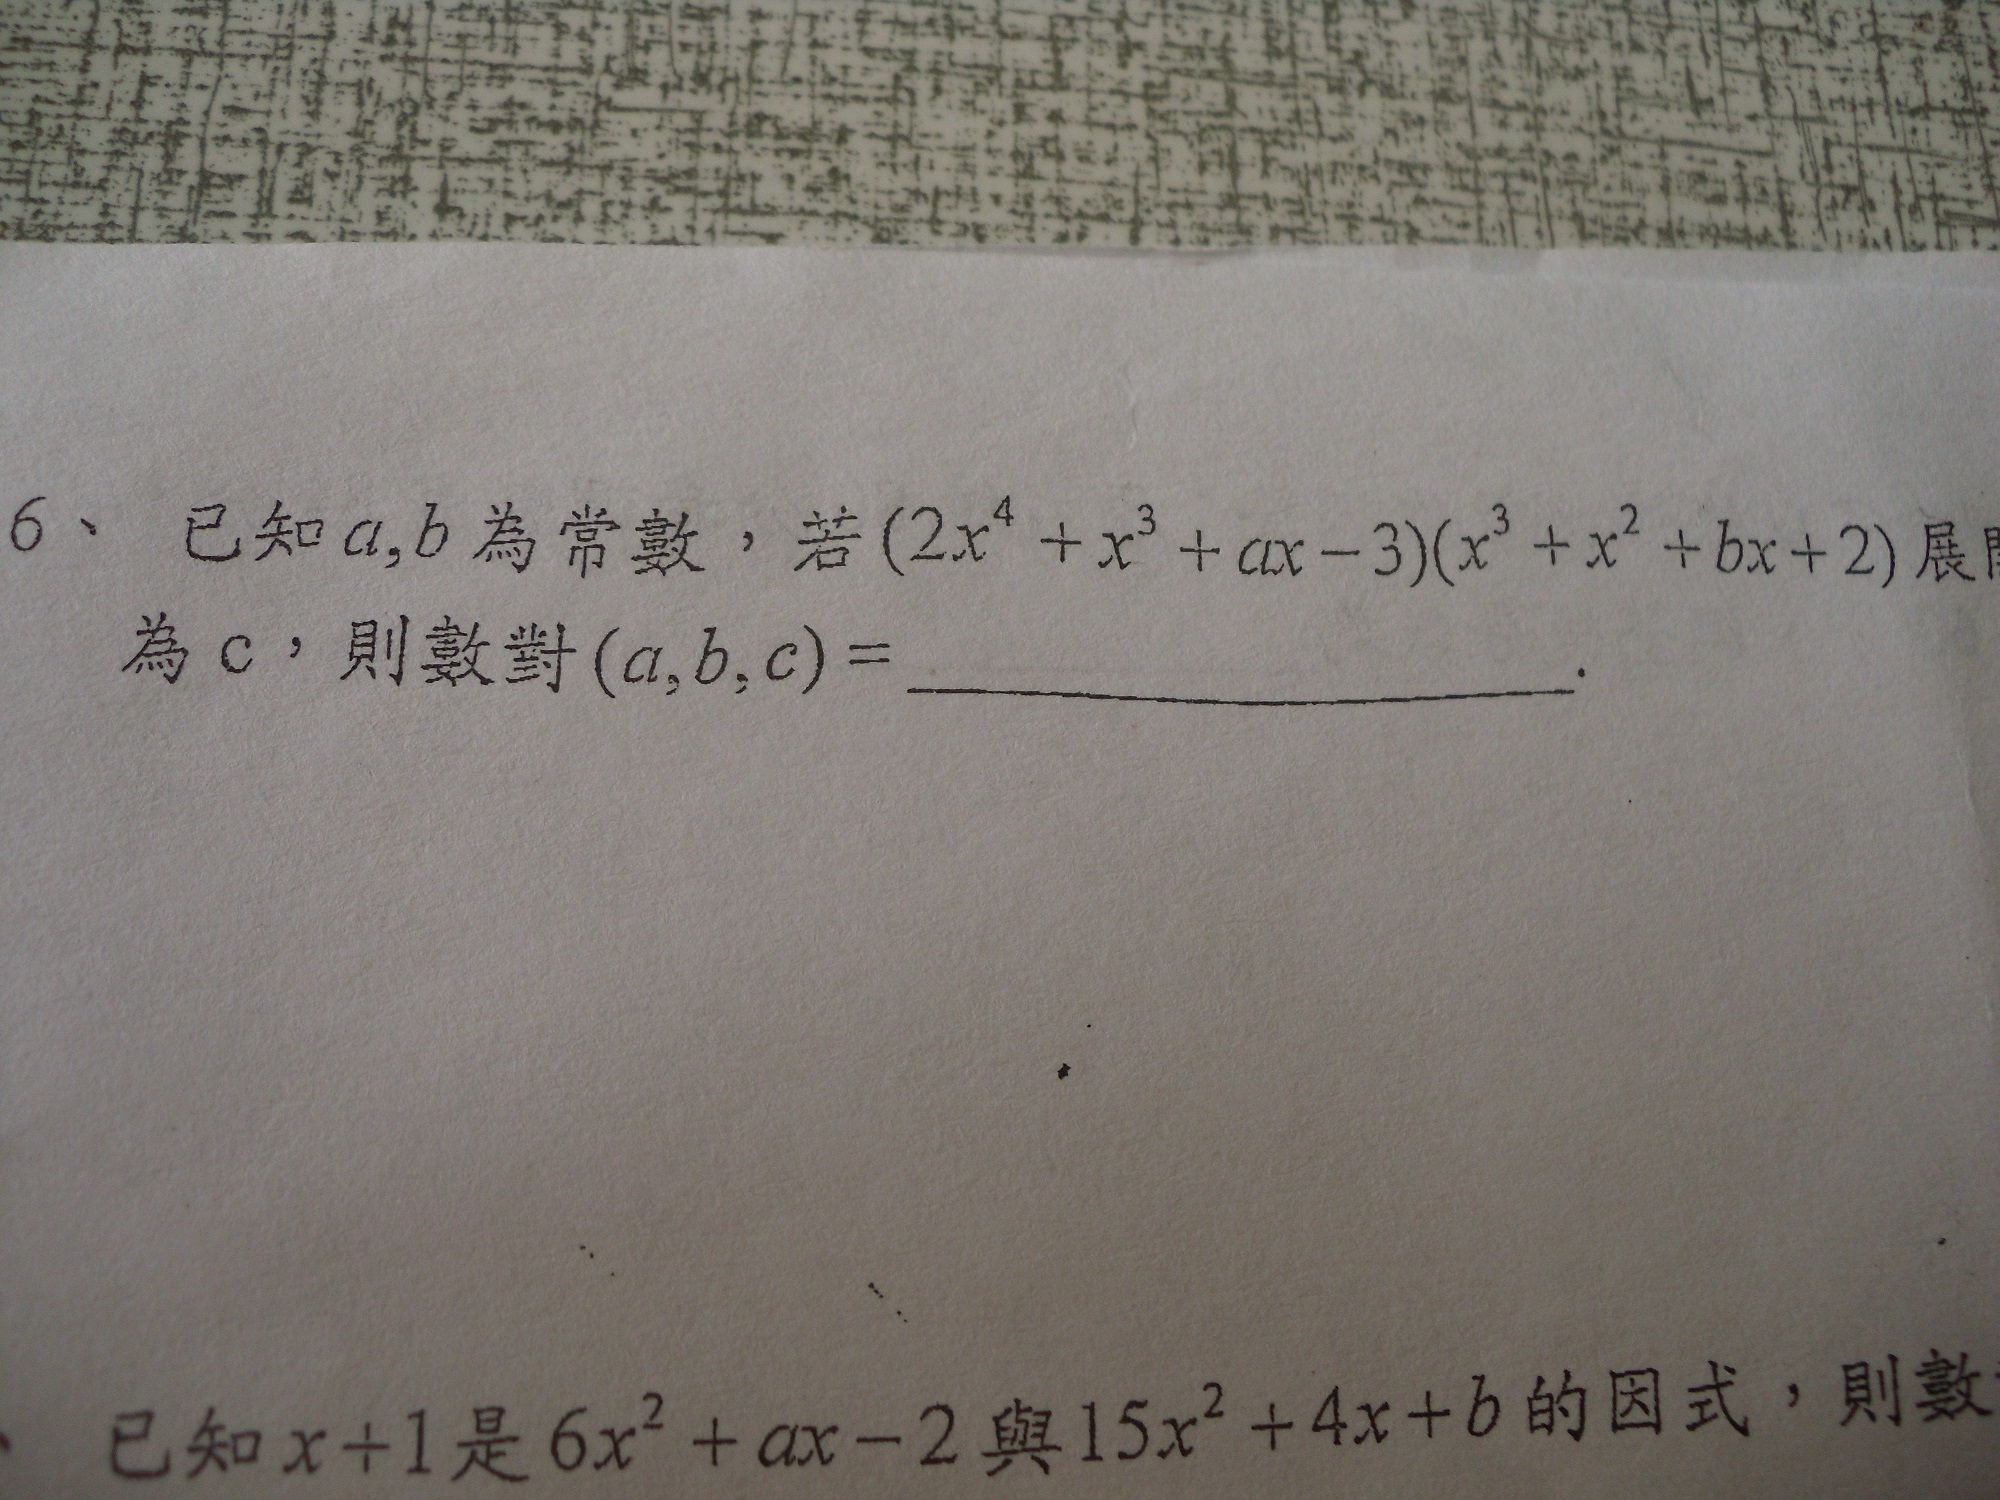 6、 已知a,b為常數，若(2x⁴+x³+ax−3)(x³+x²+bx+2)展
為c，則數對(a,b,c)=＿＿＿＿＿＿＿＿.
、 已知x+1是6x²+ax−2與15x²+4x+b的因式，則數